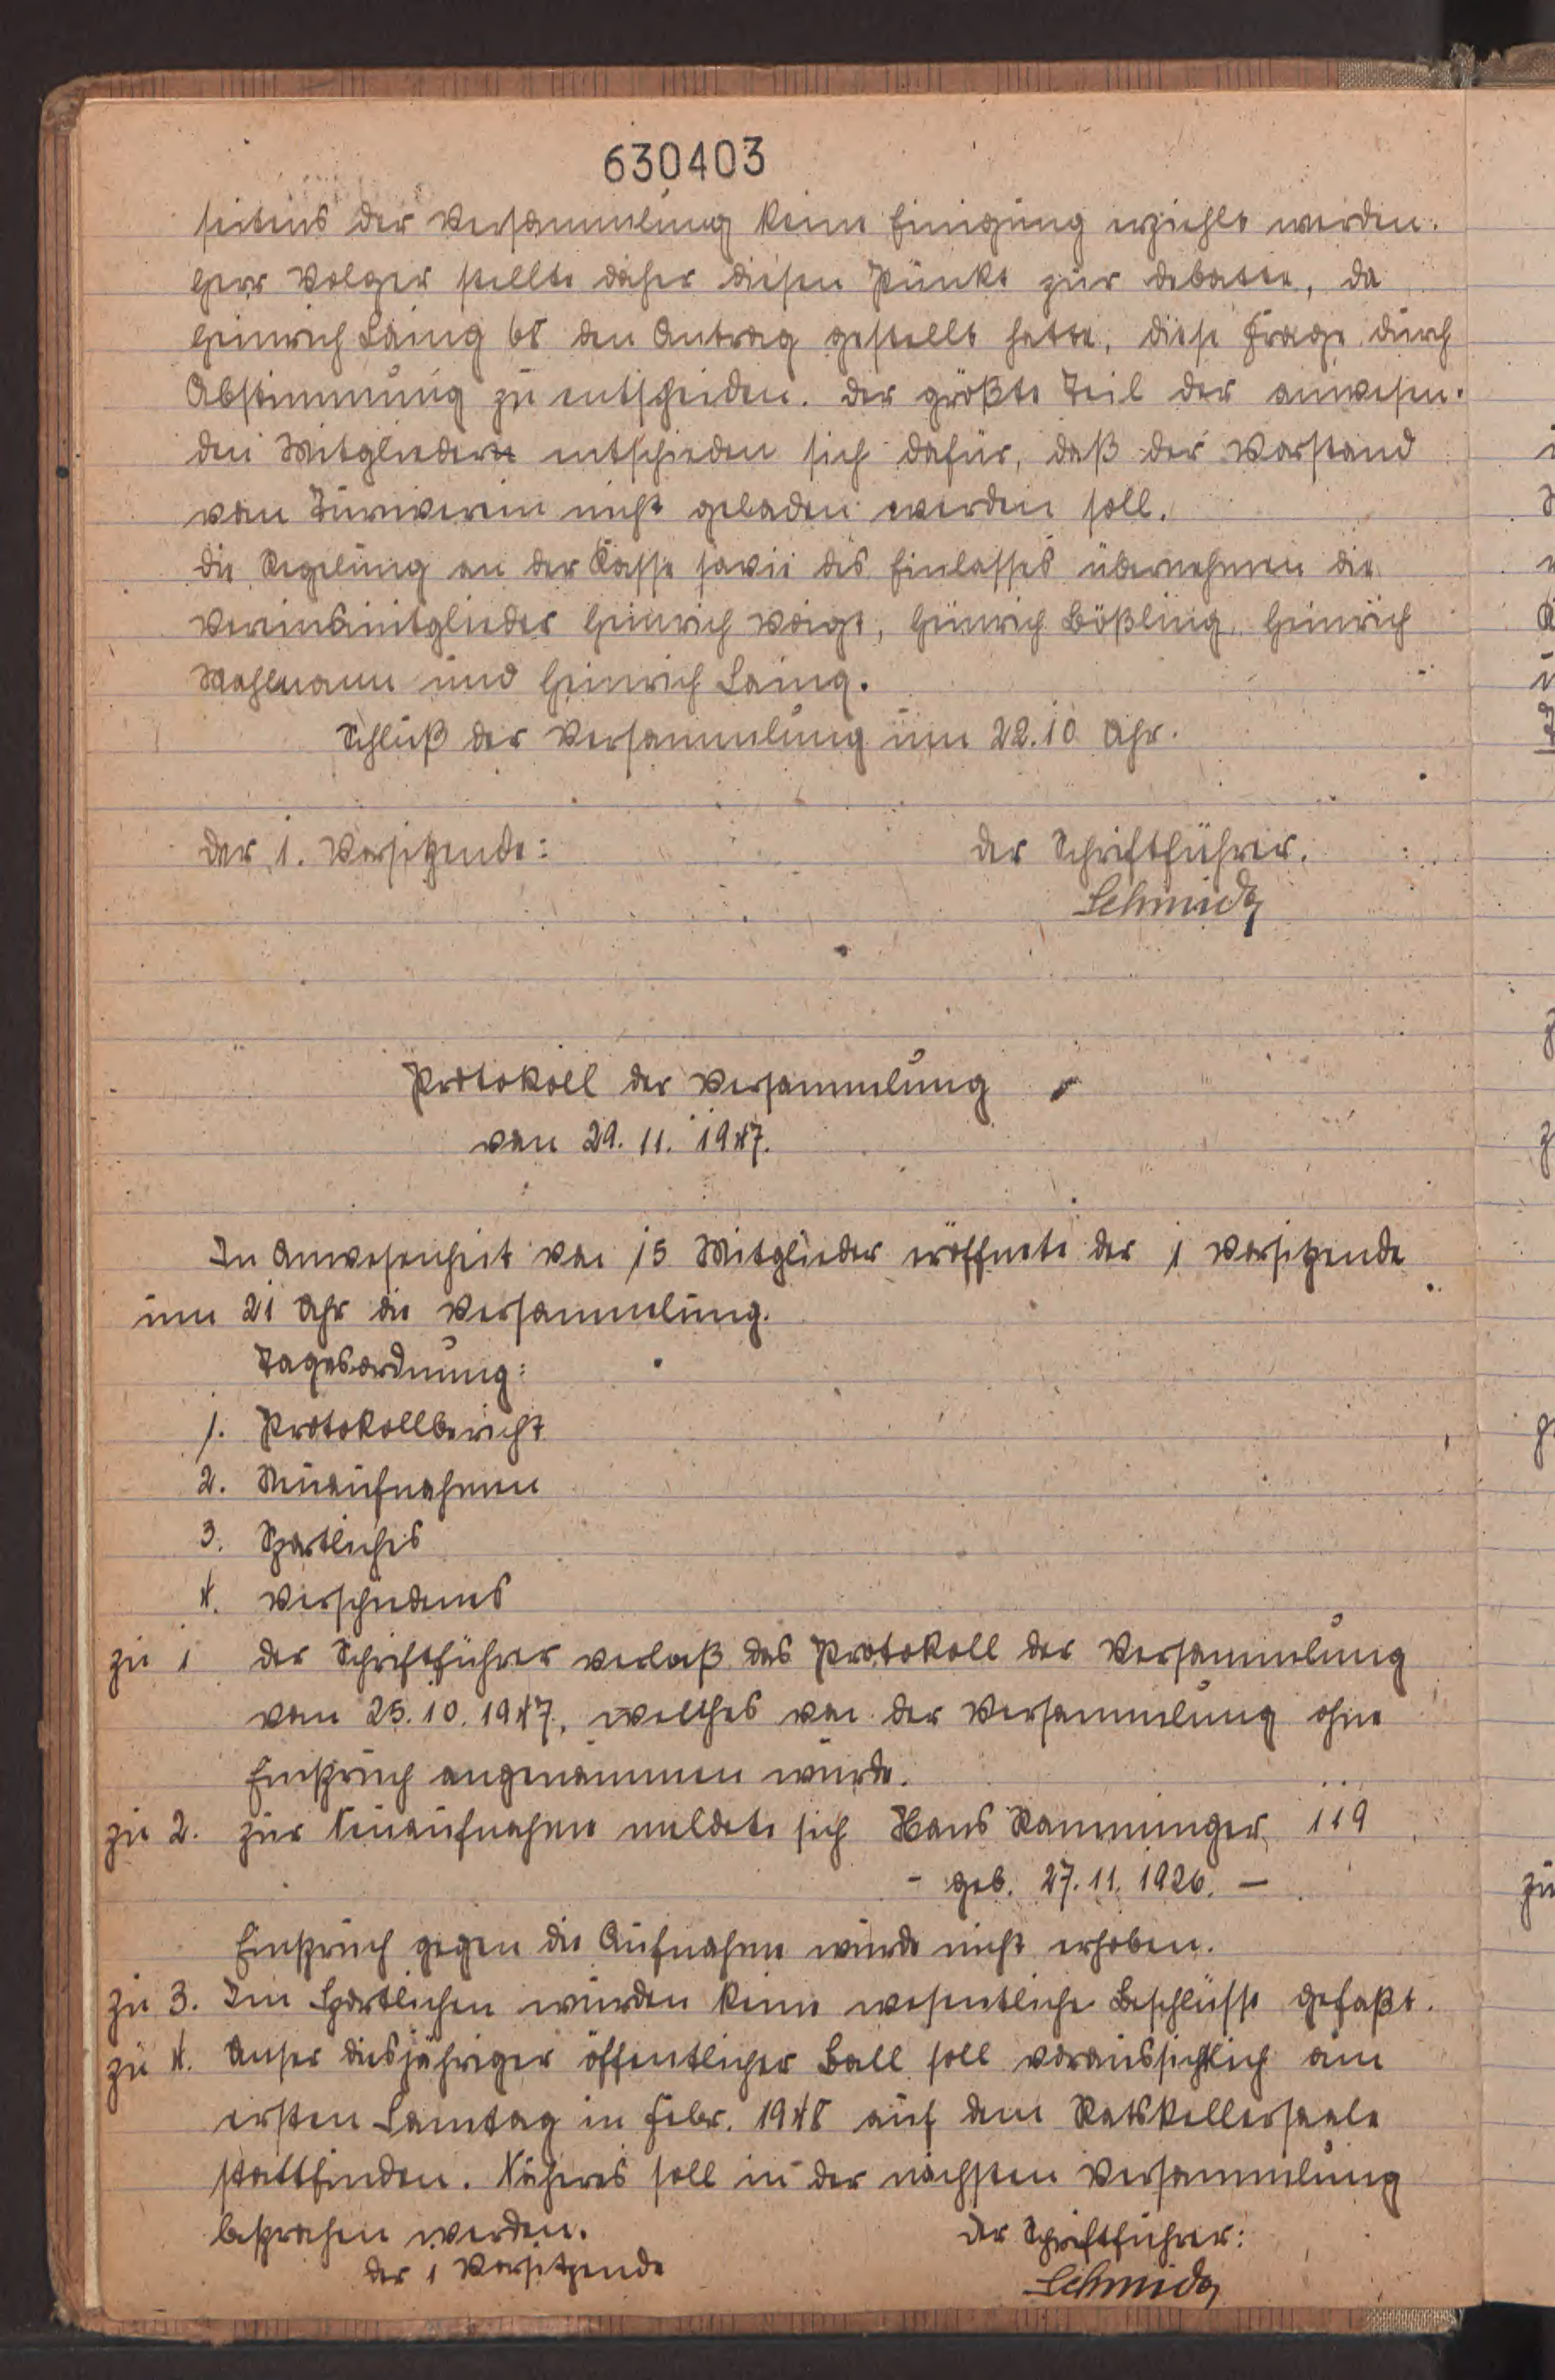 630403
seitens der Versammlung keine Einigung erziehlt werden.
Herr Volger stellte daher diesen Punkt zur Debatte, da
Heinrich Laing 68 den Antrag gestellt hatte, diese Frage durch
Abstimmung zu entscheiden. Der größte Teil der anwesen-
den Mitglieder entschieden sich dafür, daß der Vorstand
vom Turnverein nicht geladen werden soll.
Die Regelung an der Kasse sowie des Einlasses übernehmen die
Vereinsmitglieder Heinrich Voigt, Heinrich Bößling, Heinrich
Mahlmann und Heinrich Laing.
Schluß der Versammlung um 22.10 Uhr.
Der 1. Vorsitzende: Der Schriftführer.
Schmidt
Protokoll der Versammlung
vom 29. 11. 1947.
In Anwesenheit von 15 Mitglieder eröffnete der 1 Vorsitzende
um 21 Uhr die Versammlung.
Tagesordnung:
1. Protokollbericht
2. Neuaufnahmen
3. Sportliches
4. Verschiedenes
zu 1 Der Schriftführer verlaß das Protokoll der Versammlung
vom 25. 10. 1947, welches von der Versammlung ohne
Einspruch angenommen wurde.
zu 2. Zur Neuaufnahme meldete sich Hans Ramminger 119
- geb. 27. 11. 1926. -
Einspruch gegen die Aufnahme wurde nicht erhoben.
zu 3. Im Sportlichen wurden keine wesentliche Beschlüsse gefaßt.
zu 4. Unser diesjähriger öffentlicher Ball soll voraussichtlich am
ersten Samtag in Febr. 1948 auf dem Ratskellersaale
stattfinden. Näheres soll in der nächsten Versammlung
besprochen werden.
Der 1 Vorsitzende Der Schriftführer:
Schmidt